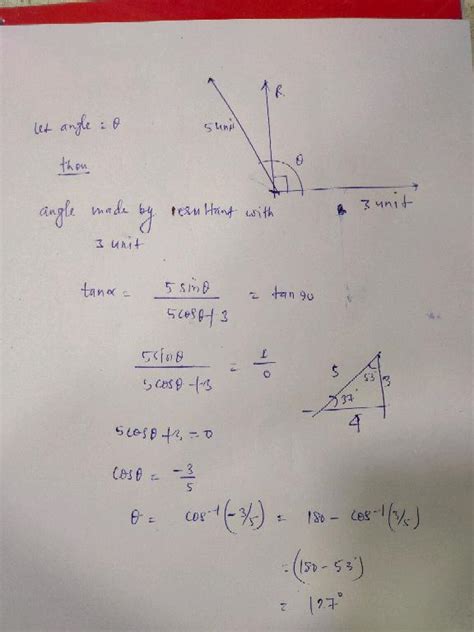 R
5 unit
θ
3 unit
let angle = θ
then
angle made by resultant with
3 unit
tanα = 5 sinθ / 5cosθ+3 = tan 90
5sinθ / 5cosθ+3 = 1/0
5
53°
3
37°
4
5cosθ+3 = 0
cosθ = -3/5
θ = cos⁻¹(-3/5) = 180 - cos⁻¹(3/5)
= (180 - 53°)
= 127°